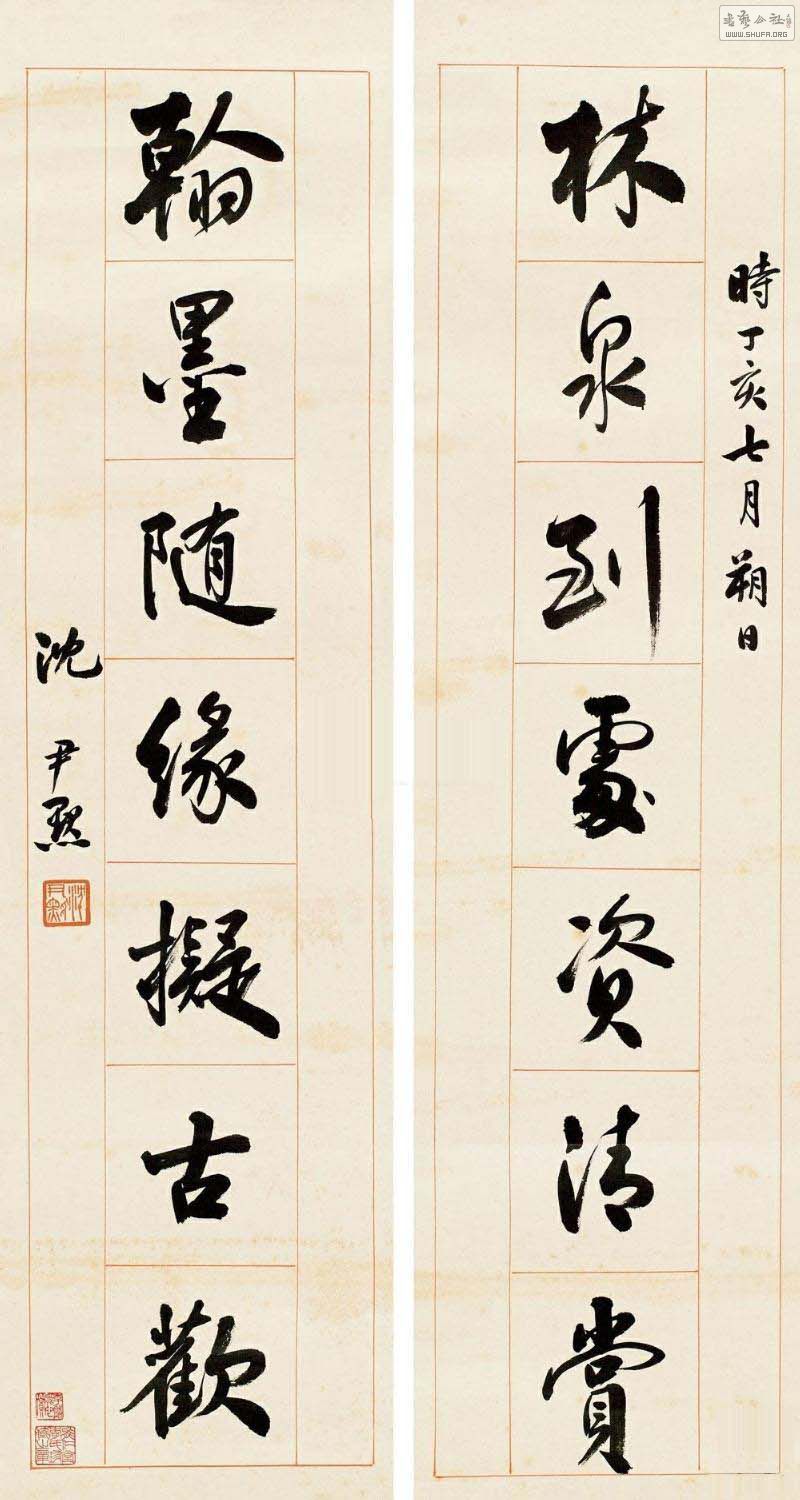 時丁亥七月朔日
林泉到處資清賞
翰墨随緣擬古歡
沈尹默
WWW.SHUFA.ORG